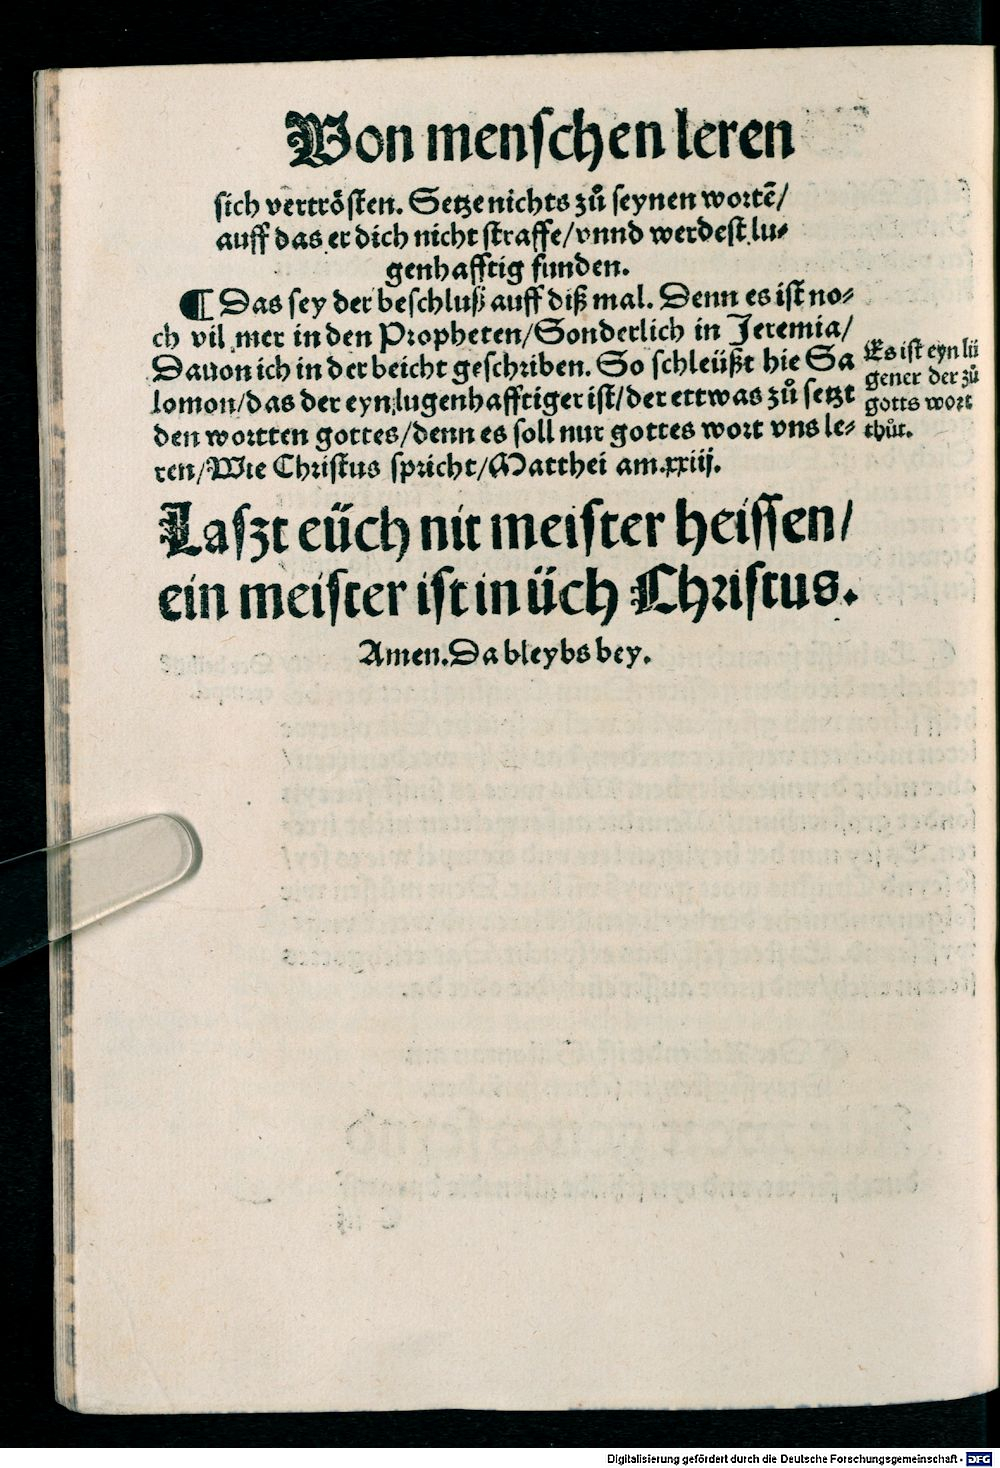 Von menschen leren
sich vertrösten. Setze nichts zů seynen wortẽ/
auff das er dich nicht straffe/vnnd werdest lu⸗
genhafftig funden.
¶ Das sey der beschluß auff diß mal. Denn es ist no⸗
ch vil mer in den Propheten/Sonderlich in Jeremia/
Dauon ich in der beicht geschriben. So schleüßt hie Sa
lomon/das der eyn lugenhafftiger ist/der ettwas zů setzt
den wortten gottes/denn es soll nur gottes wort vns le⸗
ren/Wie Christus spricht/Matthei am.xxiij.
Es ist eyn lü
gener der zů
gotts wort
thůt.
Laszt eüch nit meister heissen/
ein meister ist in üch Christus.
Amen. Da bleybs bey.
Digitalisierung gefördert durch die Deutsche Forschungsgemeinschaft - DFG